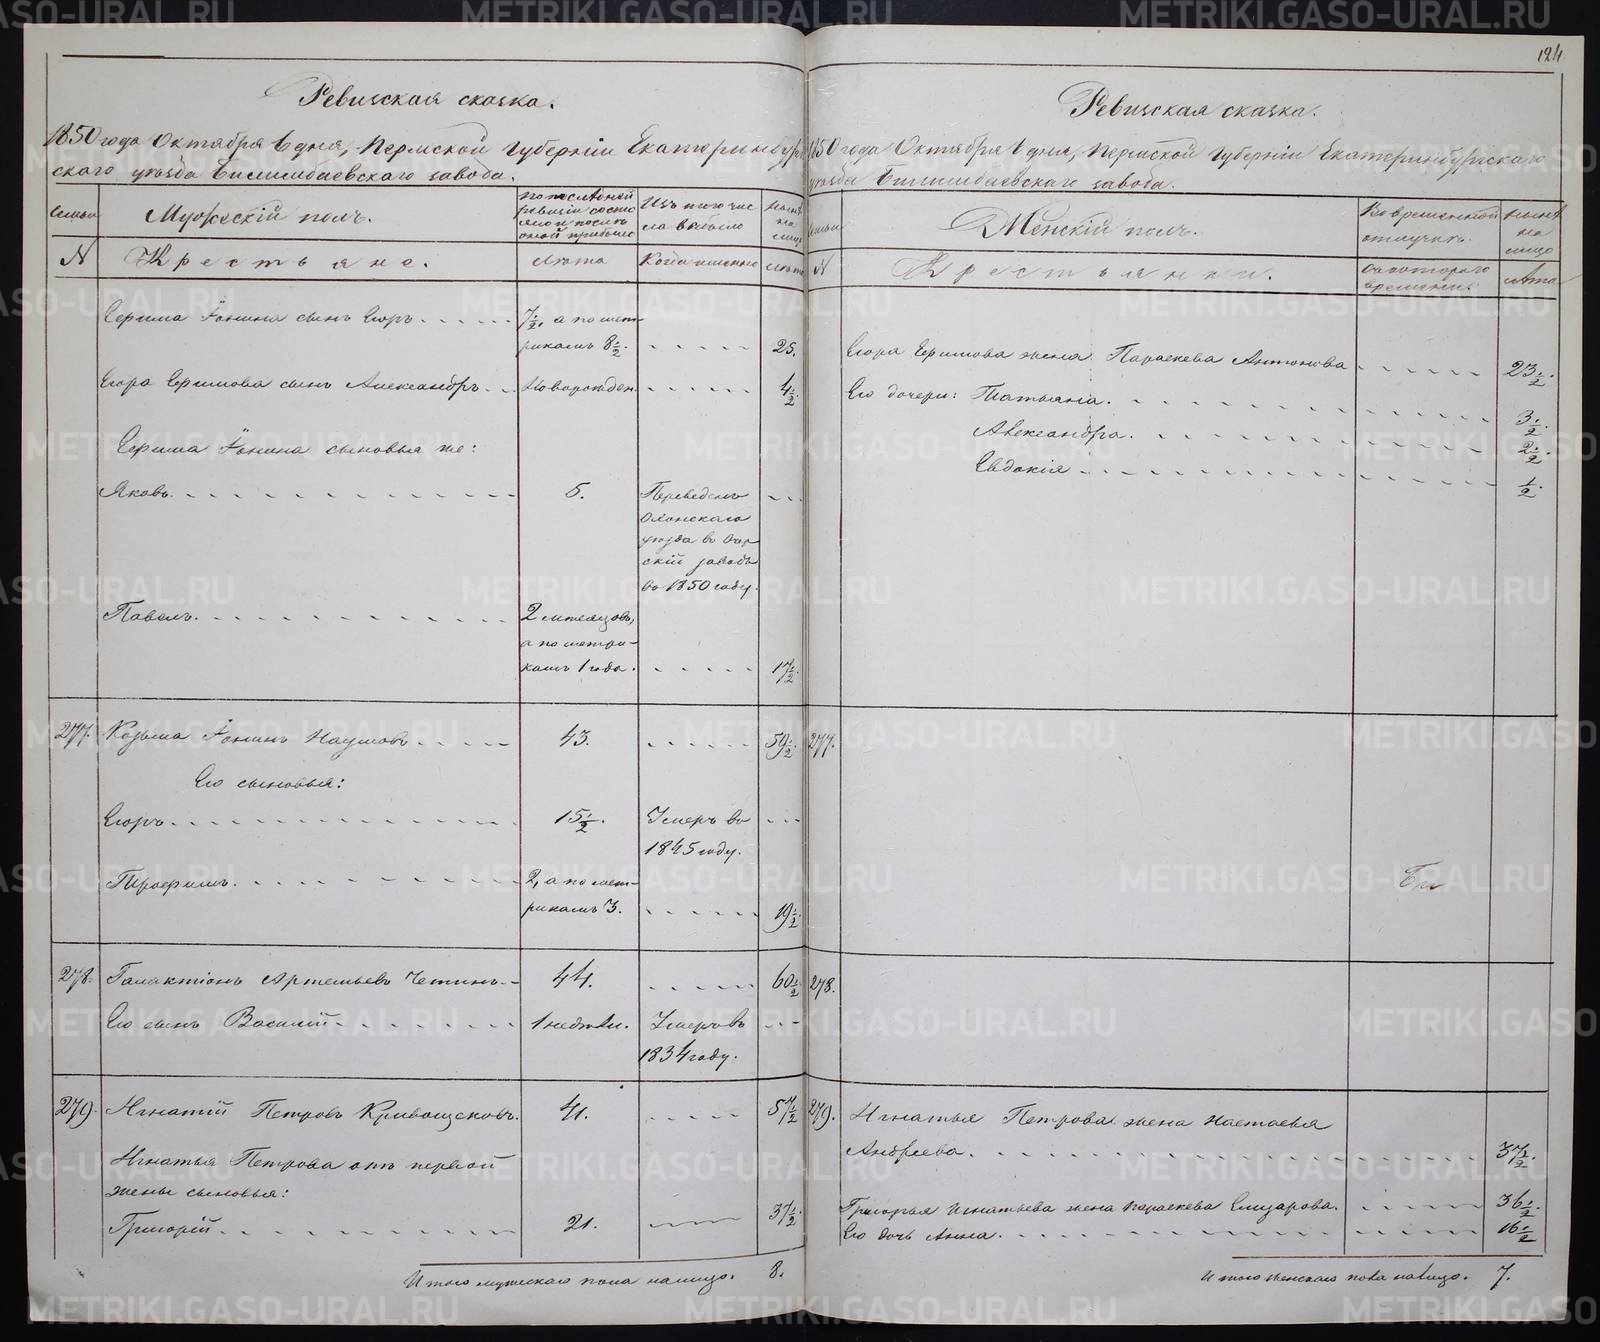 124
Ревизская сказка.
1850 года Октября 6 дня, Пермской Губерніи Екатеринбург-
скаго уѣзда Билимбаевскаго завода.
Семьи
Мужескій полъ.
По послѣдней ревизіи состояло и послѣ оной прибыло
Изъ того числа выбыло
Нынѣ на лицо
N
Крестьяне.
Лѣта
Когда именно
Лѣта
Ерима Іонина сынъ Егоръ 7½, а по мет-
рикамъ 8½. 25.
Егора Еримова сынъ Александръ Новорожден. 4½.
Ерима Іонина сыновья же:
Яковъ 5. Переведенъ
Оханскаго
уѣзда въ Очер-
скій заводъ
въ 1850 году.
Павелъ 2 мѣсяцовъ,
а по метри-
камъ 1 года. 17½.
277. Козьма Іонинъ Наумовъ 43. 59½.
Его сыновья:
Егоръ 15½. Умеръ въ
1845 году.
Трофимъ 2, а по мет-
рикамъ 3. 19½.
278. Галактіонъ Артемьевъ Четинъ 44. 60½.
Его сынъ Василій 1 недѣли. Умеръ въ
1834 году.
279. Игнатій Петровъ Кривощековъ. 41. 57½.
Игнатья Петрова отъ первой
жены сыновья:
Григорій 21. 37½.
Итого мужескаго пола налицо. 8.
Ревизская сказка.
1850 года Октября 6 дня, Пермской Губерніи Екатеринбургскаго
уѣзда Билимбаевскаго завода.
Семьи
Женскій полъ.
Во временной отлучкѣ.
Нынѣ на лицо
N
Крестьянки.
Съ котораго времени.
Лѣта
Егора Еримова жена Параскева Антонова 23½.
Его дочери: Татьяна. 3½.
Александра. 2½.
Евдокія ½.
277.
278.
279. Игнатья Петрова жена Настасья
Андреева. 37½.
Григорья Игнатьева жена Параскева Елизарова. 36½.
Его дочь Анна. 16½
Итого женскаго пола налицо. 7.
METRIKI.GASO-URAL.RU